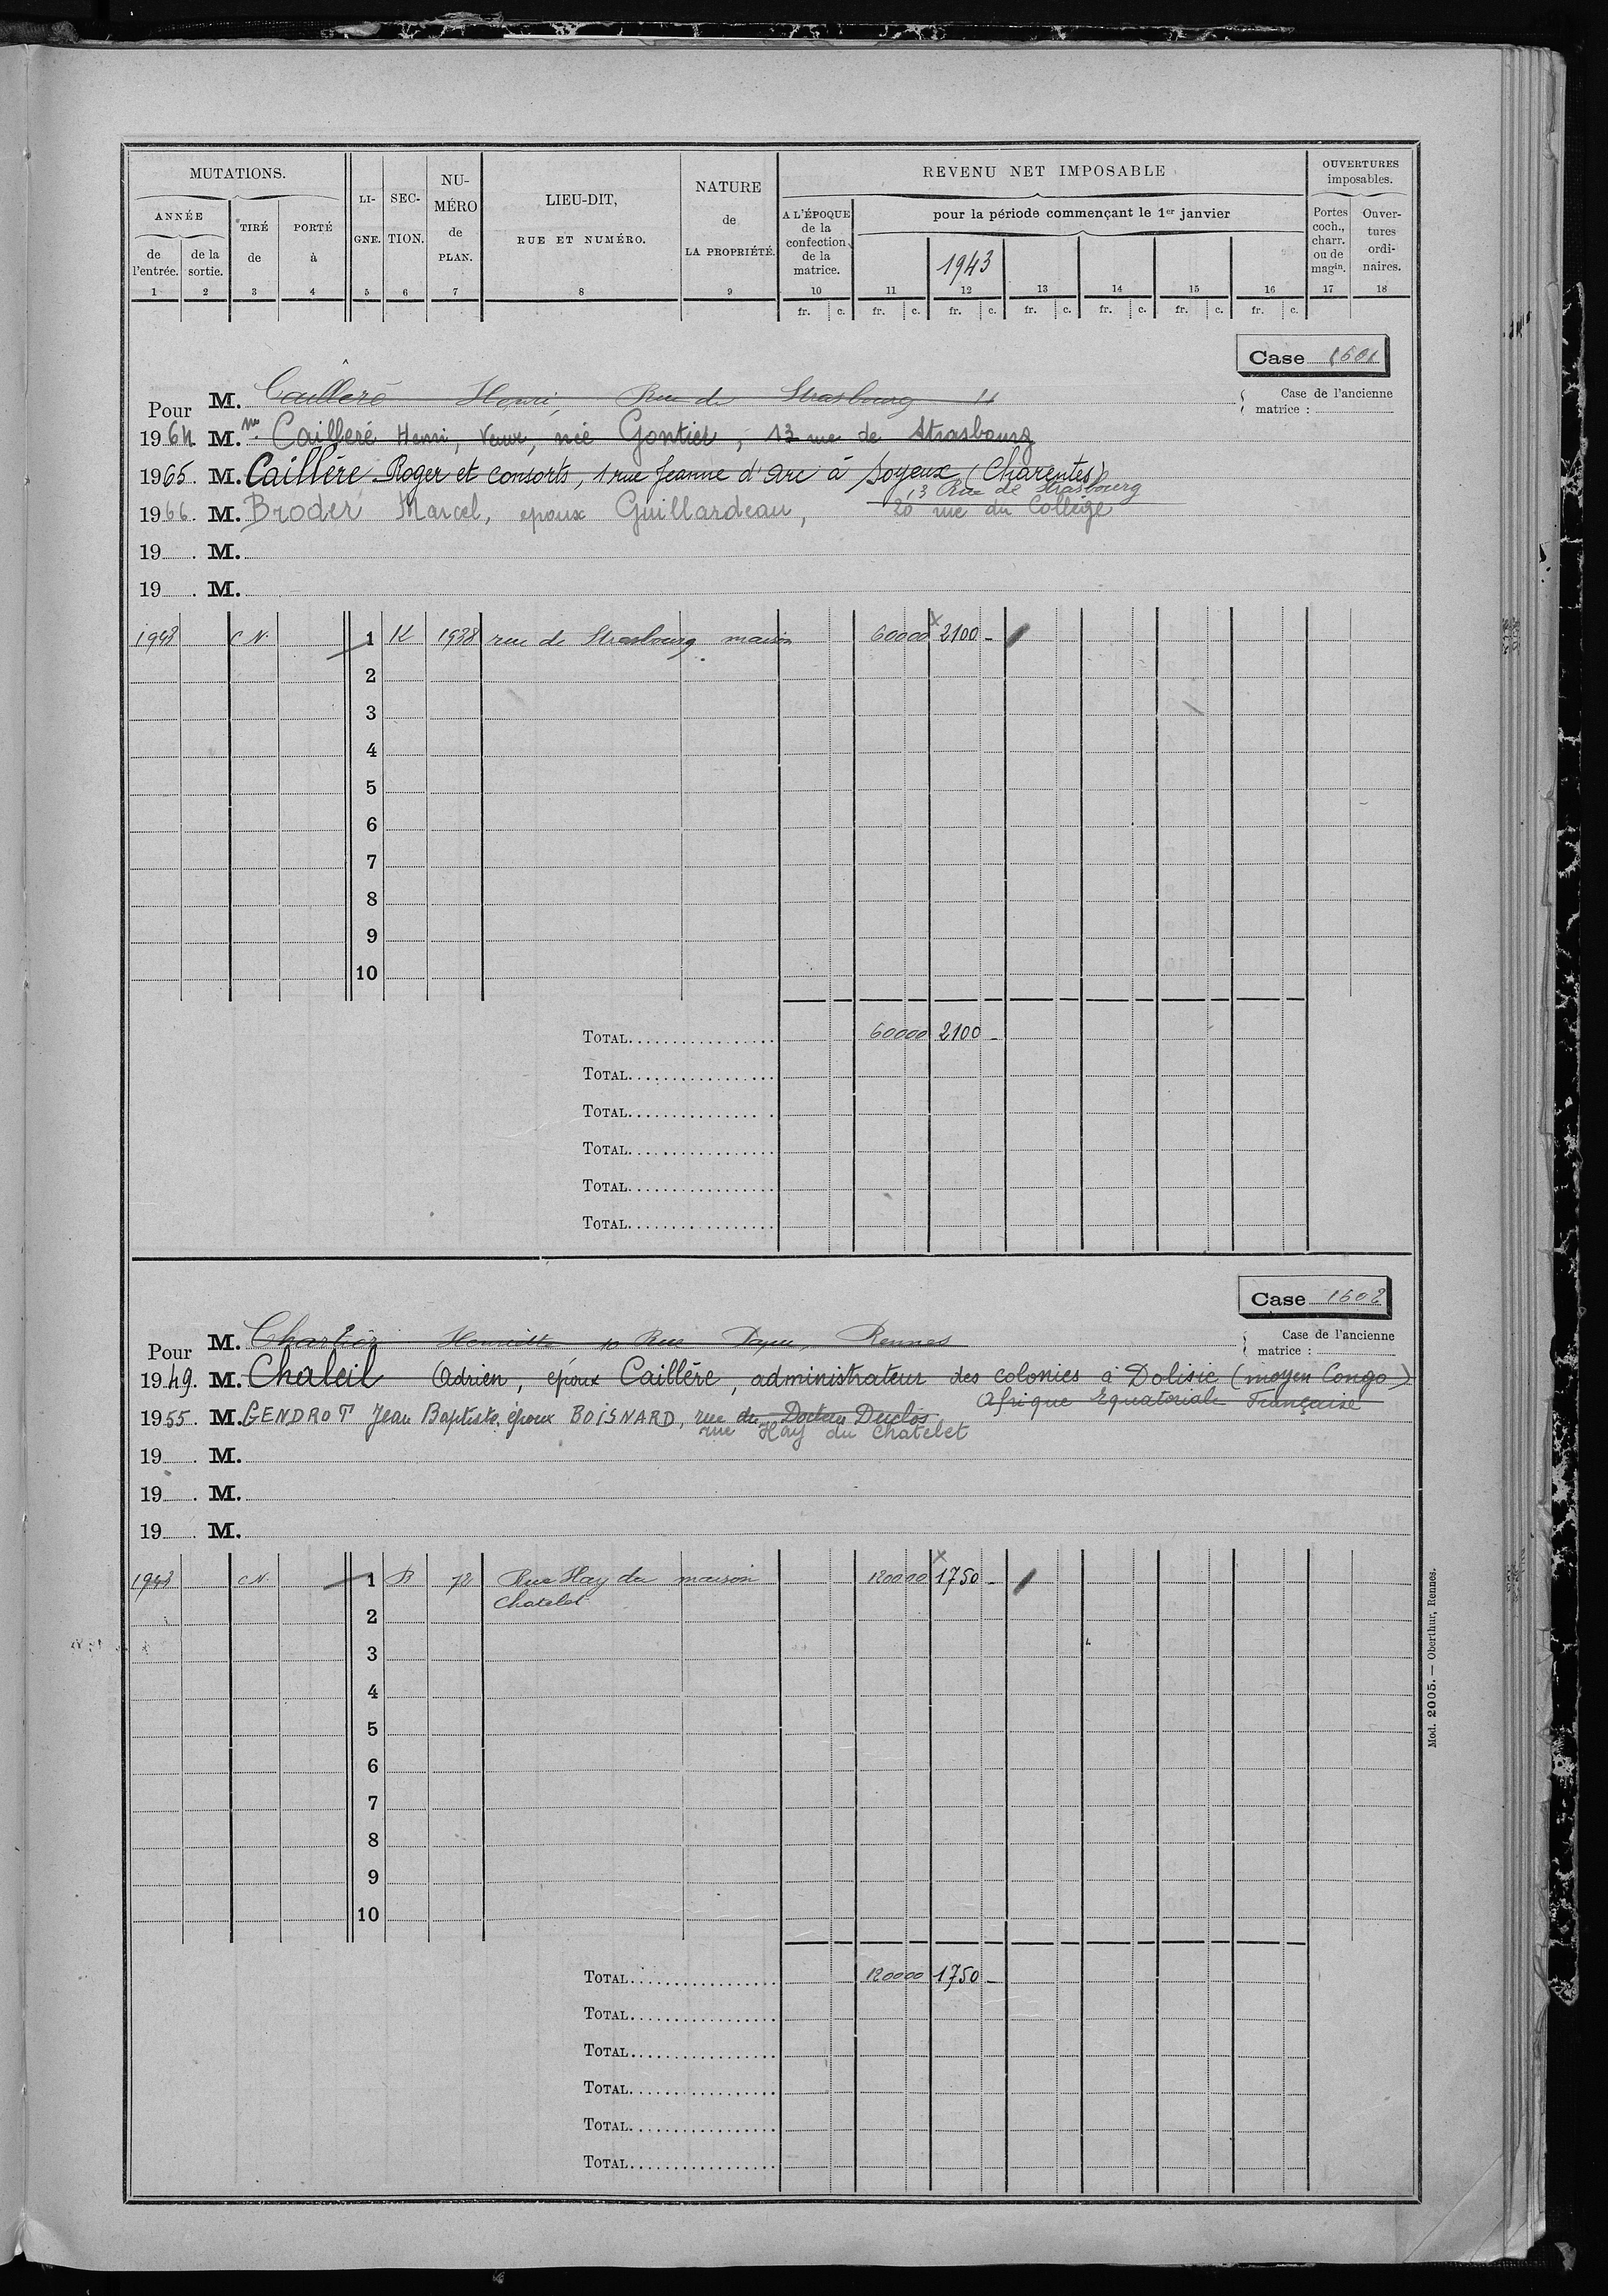 MUTATIONS.
ANNÉE
de l'entrée.
de la sortie.
TIRÉ de
PORTÉ à
LI-GNE.
SEC-TION.
NU-MÉRO de PLAN.
LIEU-DIT, RUE ET NUMÉRO.
NATURE de LA PROPRIÉTÉ.
REVENU NET IMPOSABLE
A L'ÉPOQUE de la confection de la matrice.
pour la période commençant le 1er janvier
1943
OUVERTURES imposables.
Portes coch., charr. ou de magin.
Ouver-tures ordi-naires.
1 2 3 4 5 6 7 8 9 10 11 12 13 14 15 16 17 18
fr. c. fr. c. fr. c. fr. c. fr. c. fr. c. fr. c.
Case 1601
Case de l'ancienne matrice :
Pour M. Cailleré Henri, Rue de Strasbourg
1964 M.me Cailleré Henri, Veuve, née Gontier, 13 rue de Strasbourg
1965. M. Caillère Roger et consorts, 1 rue Jeanne d'Arc à Soyeux (Charentes)
13 Rue de Strasbourg
1966. M. Broder Marcel, epoux Guillardeau, 20 rue du Collège
19 . M.
19 . M.
1943 C N. 1 K 1938 rue de Strasbourg maison 60000 2100 -
2
3
4
5
6
7
8
9
10
TOTAL 60000 2100 -
TOTAL
TOTAL
TOTAL
TOTAL
TOTAL
Case 1602
Case de l'ancienne matrice :
Pour M. Henriette 10 Rue Rennes
1949. M. Chaleil Adrien, époux Caillère, administrateur des colonies à Dolisie (moyen Congo)
Afrique Equatoriale Française
1955. M. GENDROT Jean Baptiste, époux BOISNARD, rue du Docteur Duclos
rue Hay du Chatelet
19 . M.
19 . M.
19 . M.
1943 C N. 1 B 72 Rue Hay du maison 120000 1750 -
Chatelet
2
3
4
5
6
7
8
9
10
TOTAL 120000 1750 -
TOTAL
TOTAL
TOTAL
TOTAL
TOTAL
Mod. 2005. — Oberthur, Rennes.